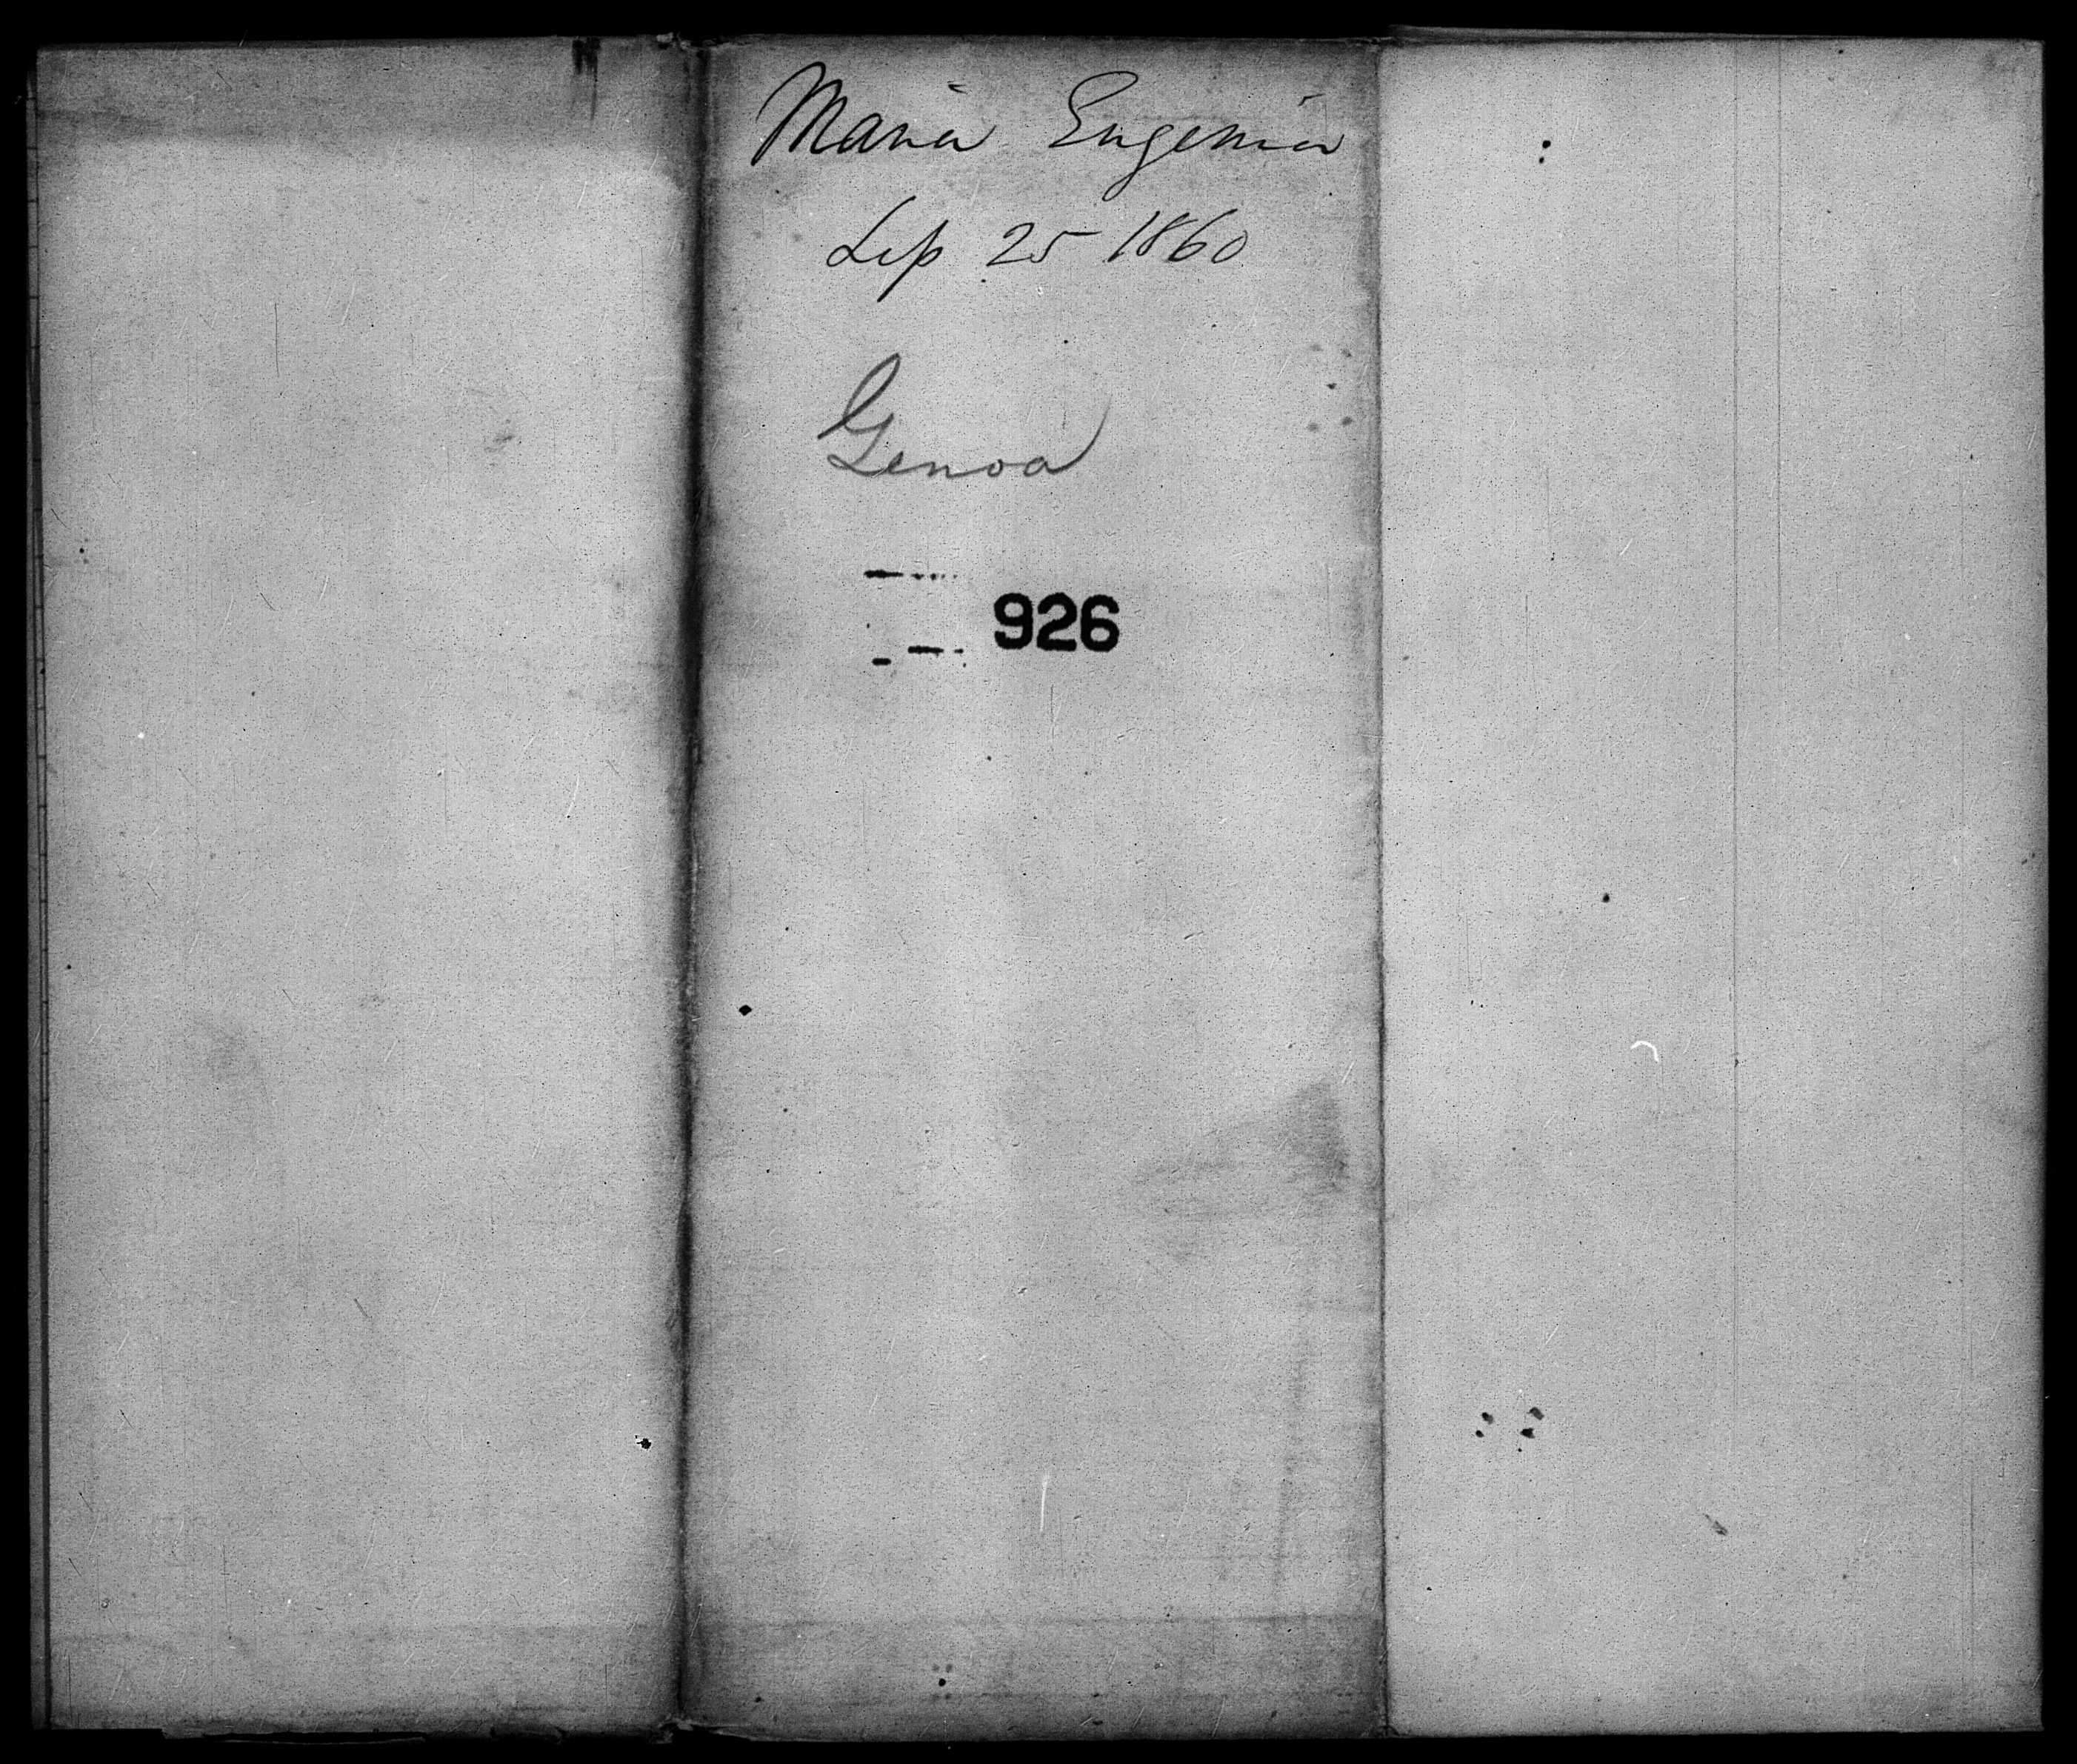 Maria Eugenia
Sep 25 1860
Genoa
926